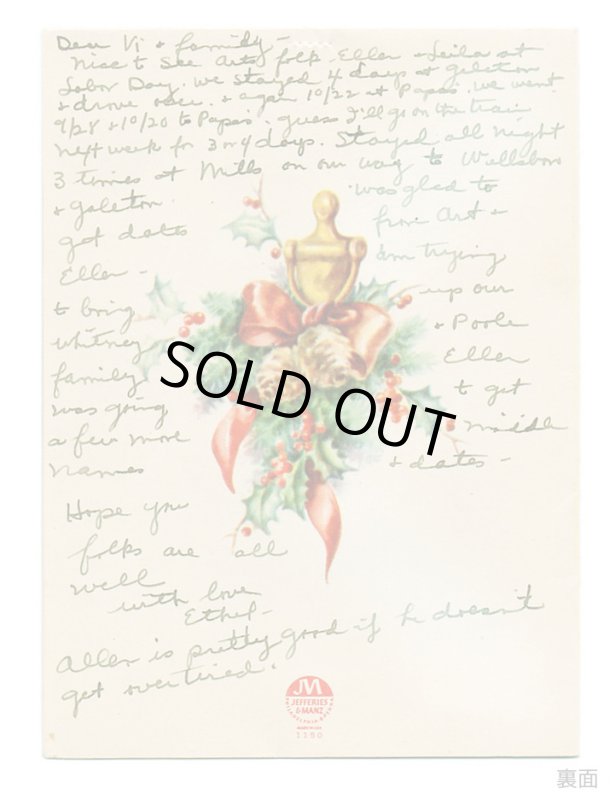 Dear Vi & family -
Nice to see Arts folk. Ellen & Leila at
Labor Day. We stayed 4 days at Galeton
& drove over. & again 10/22 at Papas. We went
9/28 & 10/20 to Papas. guess I'll go on the train
next week for 3 or 4 days. Stayed all night
3 times at Mills on our way to Wellsboro
& Galeton. was glad to
get dates from Art &
Ellen - am trying
to bring up our
Whitney & Poole
family Ellen
was going to get
a few more middle
names & dates -
Hope you
folks are all
well
with love
Ethel -
Allen is pretty good if he doesn't
get overtired.
SOLD OUT
JM
JEFFERIES
& MANZ
PHILADELPHIA
MADE IN USA
1150
裏面